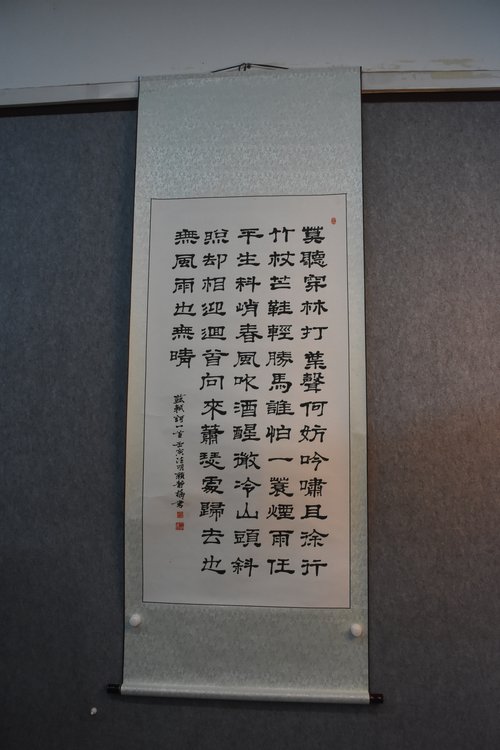 莫聽穿林打葉聲何妨吟嘯且徐行
竹杖芒鞋輕勝馬誰怕一蓑煙雨任
平生料峭春風吹酒醒微冷山頭斜
照却相迎迴首向來蕭瑟處歸去也
無風雨也無晴
蘇軾詞一首壬寅清明